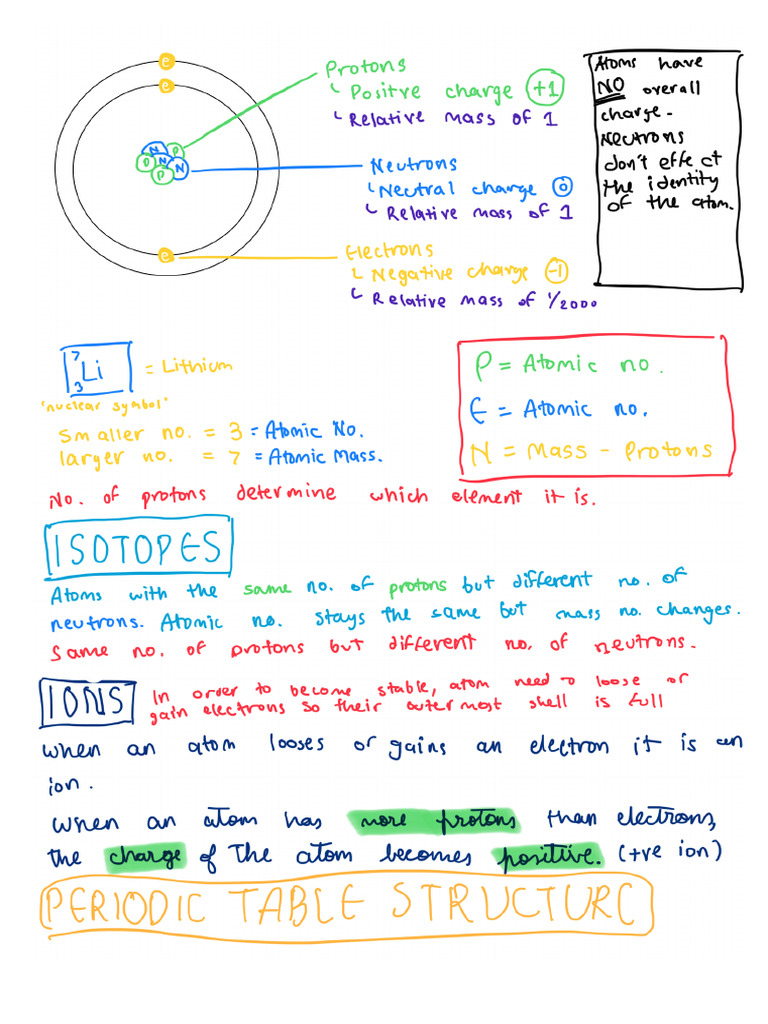 e
e
N
P
P
N
N
P
e
Protons
Positve charge +1
Relative mass of 1
Neutrons
Neutral charge 0
Relative mass of 1
Electrons
Negative charge -1
Relative mass of 1/2000
Atoms have
NO overall
charge.
Neutrons
don't effect
the identity
of the atom.
7
Li = Lithium
3
'nuclear symbol'
Smaller no. = 3 = Atomic No.
larger no. = 7 = Atomic Mass.
P = Atomic no.
E = Atomic no.
N = Mass - Protons
No. of protons determine which element it is.
ISOTOPES
Atoms with the same no. of protons but different no. of
neutrons. Atomic no. stays the same but mass no. changes.
Same no. of protons but different no. of neutrons.
IONS
In order to become stable, atom need to loose or
gain electrons so their outermost shell is full
When an atom looses or gains an electron it is an
ion.
When an atom has more protons than electrons,
the charge of the atom becomes positive. (+ve ion)
PERIODIC TABLE STRUCTURE